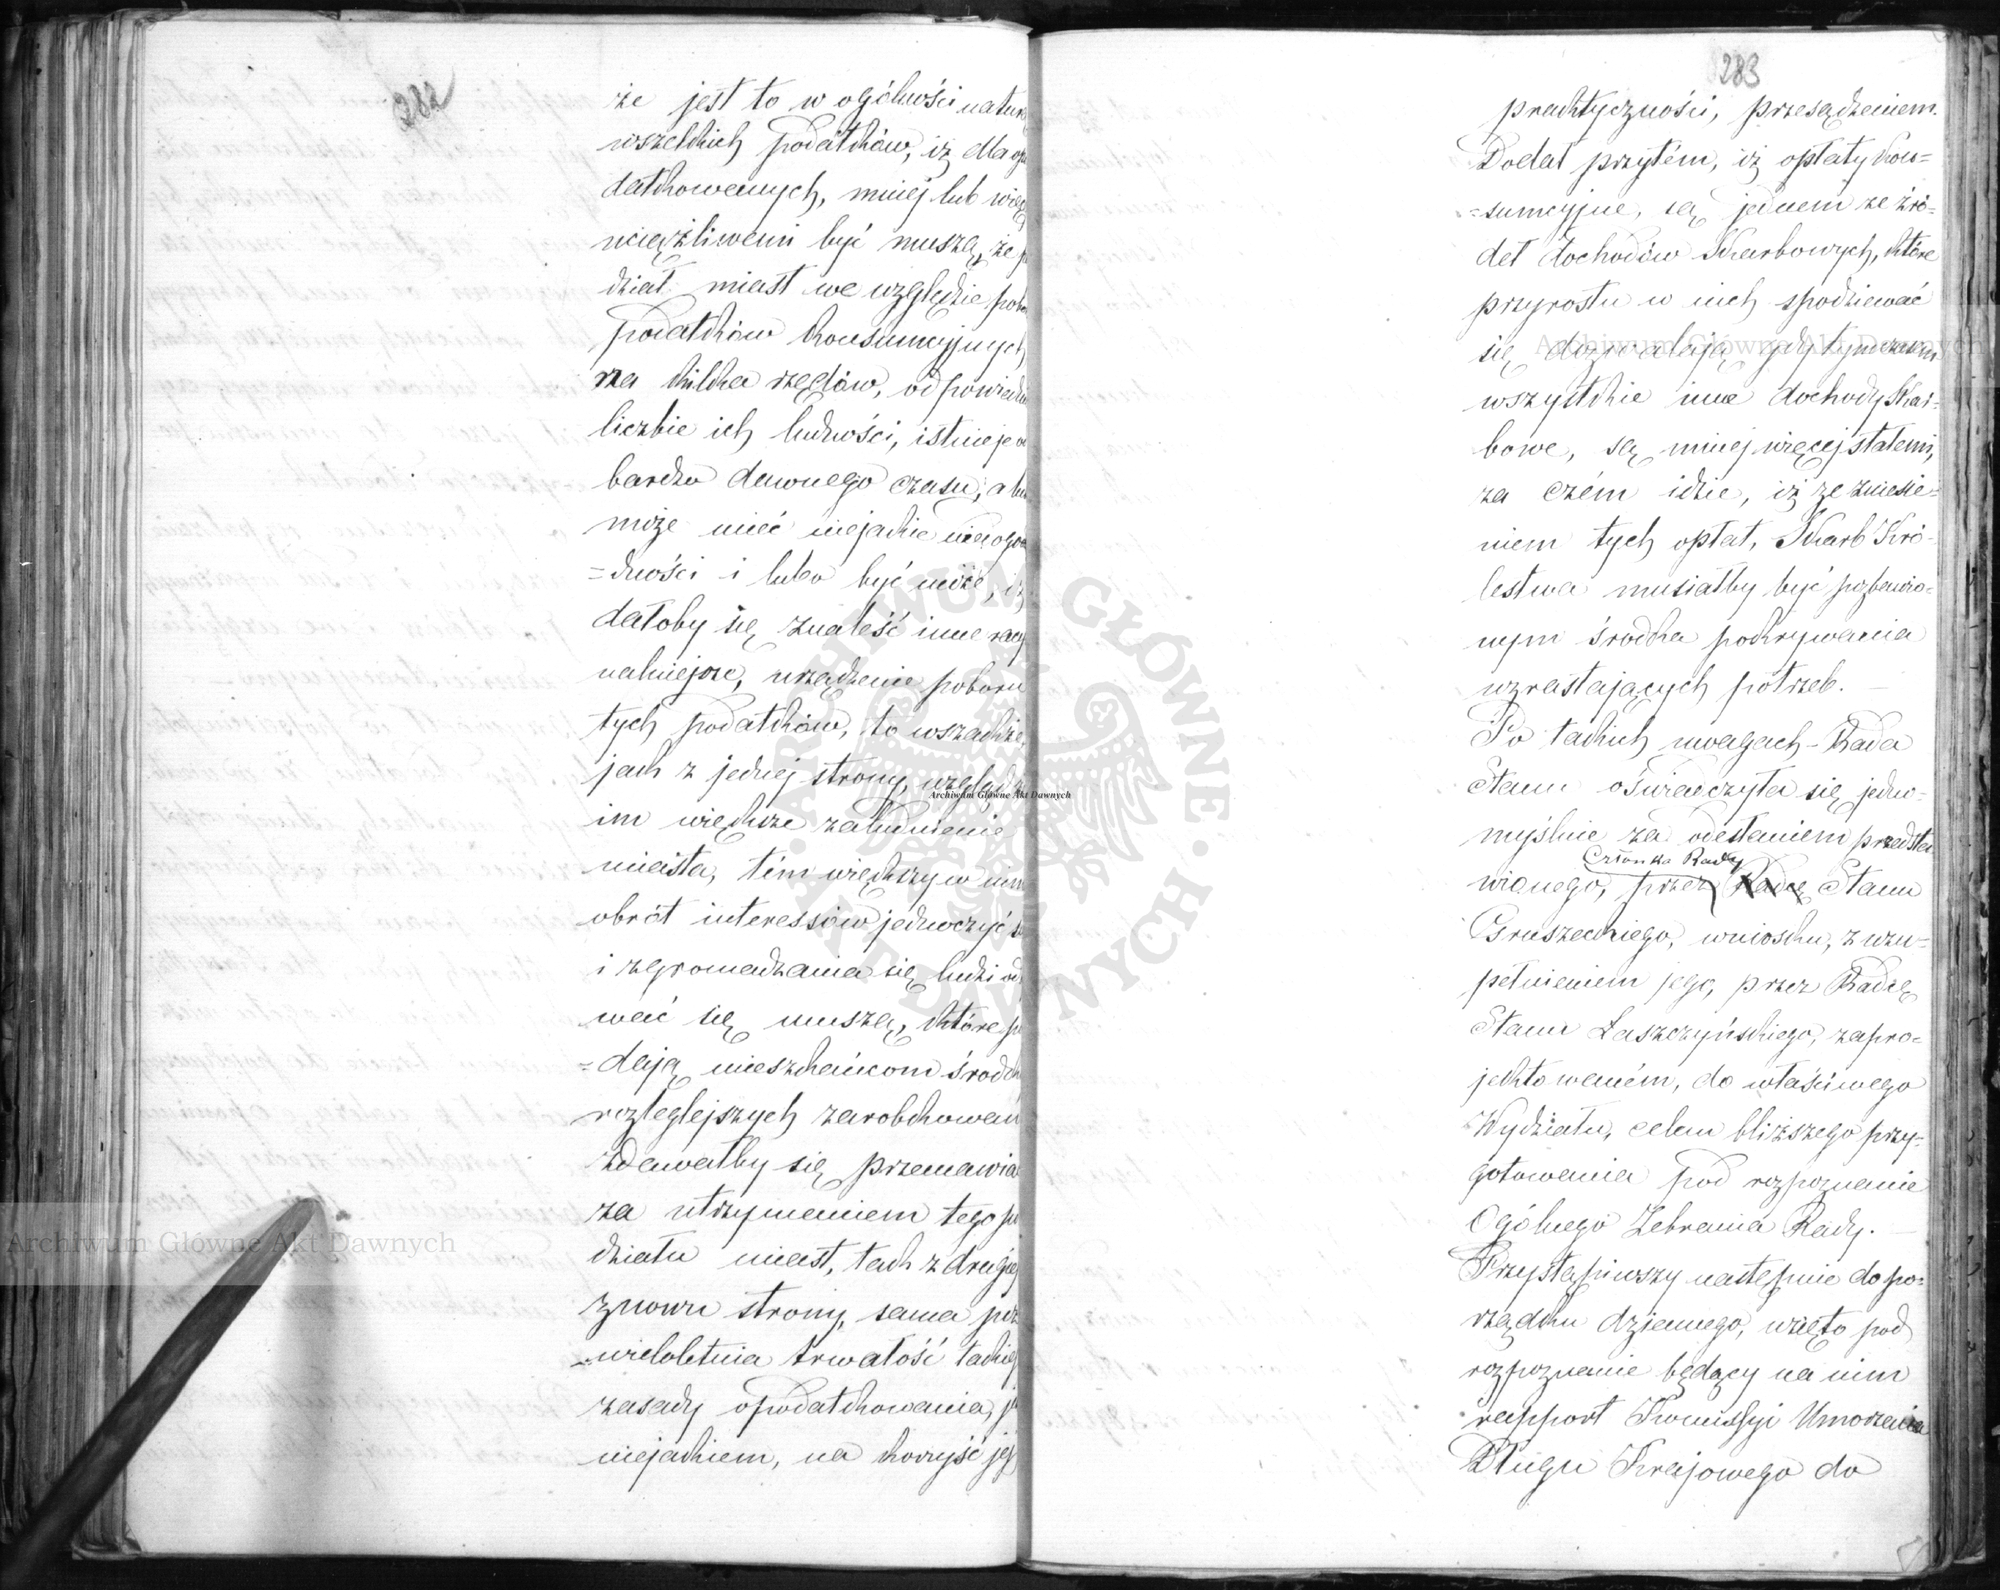 282
że jest to w ogólności natur
wszelkich podatków, iż dla op
datkowanych, mniej lub więc
uciążliwemi być muszą, że p
dział miast we względzie pob
podatków konsumcyjnych
na kilka rzędów, odpowiedn
liczbie ich ludności, istnieje o
bardzo dawnego czasu, a lub
może mieć niejakie niedogo
=dności i lubo być może, iż
dałoby się znaleść inne racy
nalniejsze, urządzenie poboru
tych podatków, to wszakże,
jak z jednej strony, wzgląd, ż
im większe zaludnienie
miasta, tém większy w nim
obrót interessów jednoczyć s
i zgromadzania się ludzi od
wać się muszą, które po
=dają mieszkańcom środk
rozleglejszych zarobkowań
zdawałby się przemawia
za utrzymaniem tego po
działu miast, tak z drugiej
znowu strony, sama prz
=wieloletnia trwałość takiej
zasady opodatkowania, j
niejakiem, na korzyść jej
283
praktyczności, przesądzeniem.
Dodał przytém, iż opłaty kon=
=sumcyjne, są jednem ze źró=
deł dochodów Skarbowych, które
przyrostu w nich spodziewać
się dozwalają, gdy tymczasem
wszystkie inne dochody Skar=
bowe, są mniej więcej stałemi,
za czém idzie, iż ze zniesie=
niem tych opłat, Skarb Kró=
lestwa musiałby być pozbawio=
nym środka pokrywania
wzrastających potrzeb. —
Po takich uwagach - Rada
Stanu oświadczyła się jedno=
myślnie za odesłaniem przedsta
Członka Rady
wionego, przez Radcę Stanu
Gruszeckiego, wniosku, z uzu=
pełnieniem jego, przez Radcę
Stanu Łaszczyńskiego, zapro=
jektowaném, do właściwego
Wydziału, celem bliższego przy=
gotowania pod rozpoznanie
Ogólnego Zebrania Rady. —
Przystąpiwszy następnie do po=
rządku dziennego, wzięto pod
rozpoznanie będący na nim
rapport Kommissyi Umorzenia
Długu Krajowego do
Archiwum Główne Akt Dawnych
Archiwum Główne Akt Dawnych
Archiwum Główne Akt Dawnych
ARCHIWUM GŁÓWNE AKT DAWNYCH